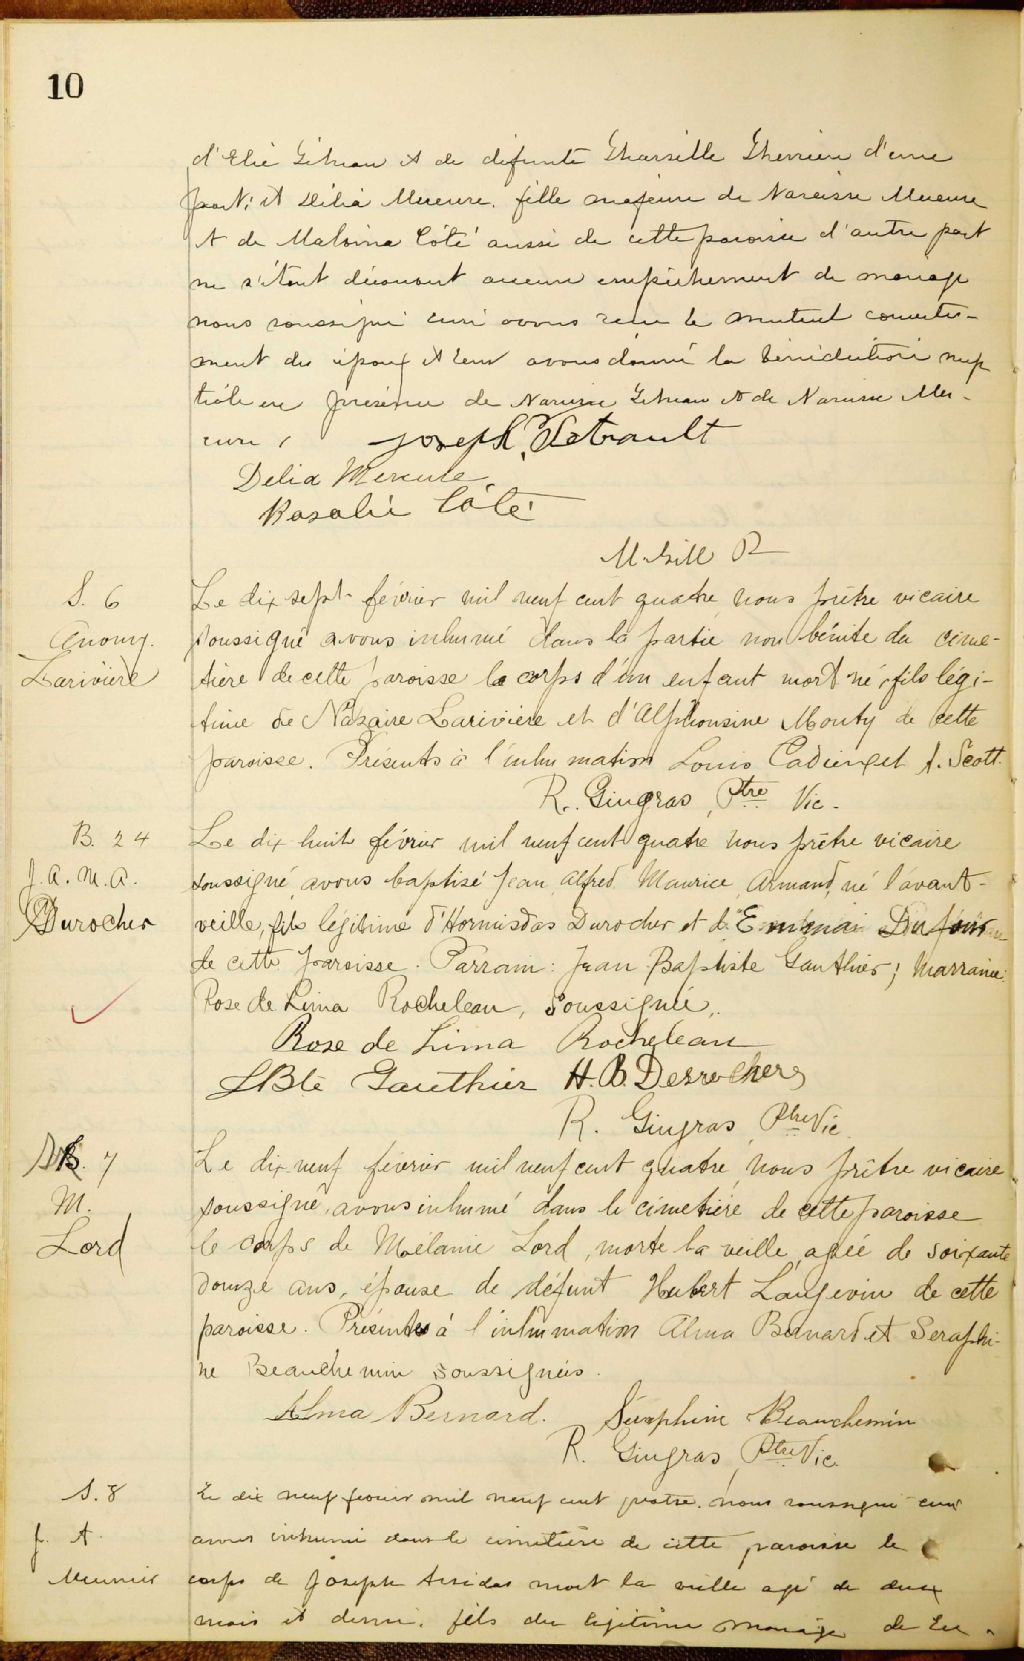 10
d'Elie Gétreau et de défunte Tharsille Therrien d'une
part; et Délia Mercure, fille majeure de Narcisse Mercure
et de Malvina Côté aussi de cette paroisse d'autre part
ne s'étant découvert aucun empêchement de mariage
nous soussigné curé avons reçu le mutuel consente-
ment des époux et leur avons donné la bénédiction nup
tiale en présence de Narcisse et de Narcisse Mer-
cure,
Joseph Tétrault
Delia Mercure
Rosalié Côté
S. 6
Anony.
Larivière
Le dix sept février mil neuf cent quatre, nous prêtre vicaire
soussigné avons inhumé dans la partie non bénite du cime-
tière de cette paroisse le corps d'un enfant mort né, fils légi-
time de Nazaire Larivière et d'Alphonsine Monty de cette
paroisse. Présents à l'inhumation Louis Cadieux et A. Scott.
R. Gingras, Ptre Vic.
B. 24
J. A. M. A.
Durocher
Le dix huit février mil neuf cent quatre nous prêtre vicaire
soussigné avons baptisé Jean, Alfred, Maurice, Armand, né l'avant-
veille, fils légitime d'Hormisdas Durocher et de Emma Dufour
de cette paroisse. Parrain: Jean Baptiste Gauthier; Marraine:
Rose de Lima Rocheleau, soussignée,.
Rose de Lima Rocheleau
JBte Gauthier H. B. Desrochers
R. Gingras, Ptre Vic
S. 7
M.
Lord
Le dix neuf février mil neuf cent quatre, nous prêtre vicaire
soussigné, avons inhumé dans le cimetière de cette paroisse
le corps de Mélanie Lord, morte la veille, agée de soixante
douze ans, épouse de défunt Hubert Langevin de cette
paroisse. Présentes à l'inhumation Alma Bernard et Seraphi-
ne Beauchemin soussignées.
Alma Bernard. Séraphine Beauchemin
R. Gingras, Ptre Vic.
S. 8
J. A.
Meunier
Le dix neuf février mil neuf cent quatre, nous soussigné curé
avons inhumé dans le cimetière de cette paroisse le
corps de Joseph Arsidas mort la veille agé de deux
mois et demi, fils du légitime mariage de